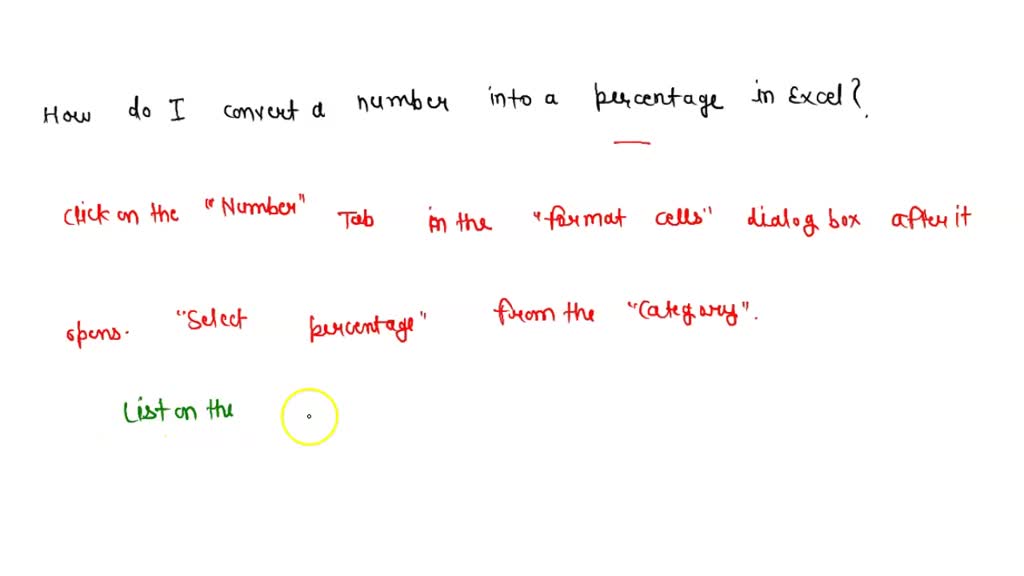 How do I convert a number into a percentage in Excel?
Click on the "Number" Tab in the "format cells" dialog box after it
opens. "Select percentage" from the "Category".
List on the